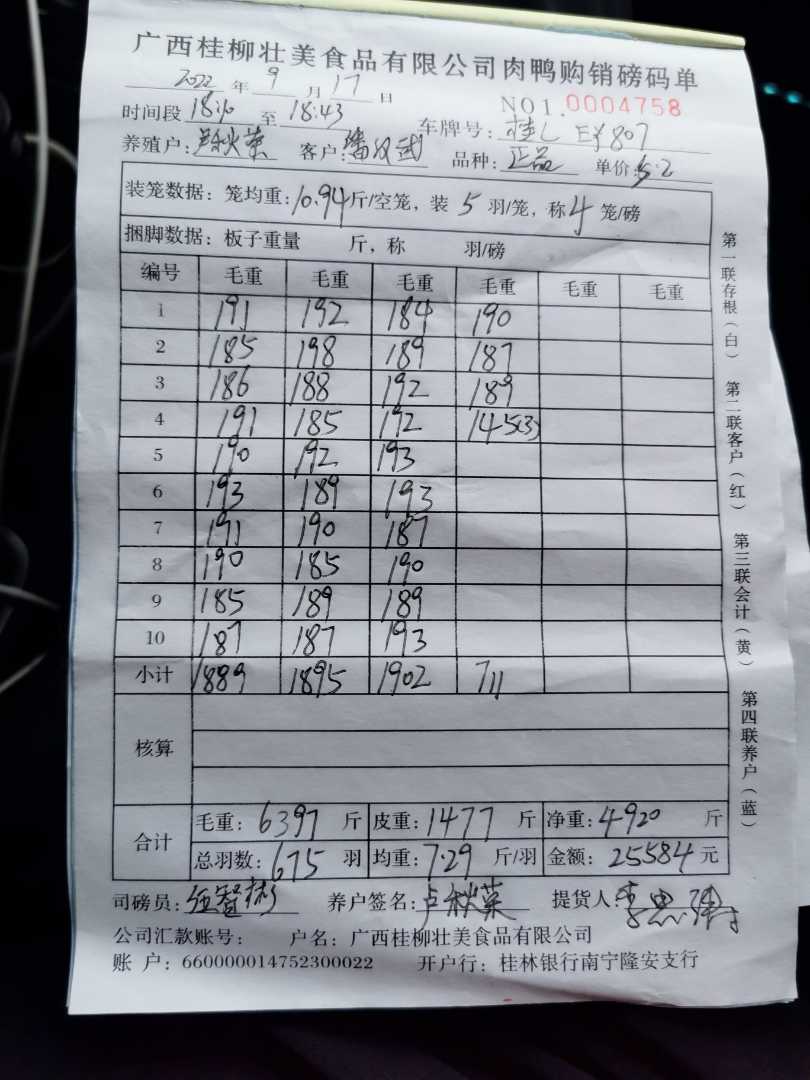 广西桂柳壮美食品有限公司肉鸭购销磅码单
2022 年 9 月 17 日
NO1.0004758
时间段 18:10 至 18:43 车牌号:桂L EY807
养殖户:卢秋菜 客户:潘汉武 品种:正品 单价:5.2
装笼数据:笼均重:10.94斤/空笼,装 5 羽/笼,称4 笼/磅
捆脚数据:板子重量 斤,称 羽/磅
编号 毛重 毛重 毛重 毛重 毛重 毛重
1 191 192 184 190
2 185 198 189 187
3 186 188 192 189
4 191 185 192 145(3)
5 190 192 193
6 193 189 193
7 191 190 187
8 190 185 190
9 185 189 189
10 187 187 193
小计 1889 1895 1902 711
核算
合计
毛重:6397 斤 皮重:1477 斤 净重:4920 斤
总羽数:675 羽 均重:7.29 斤/羽 金额:25584 元
司磅员:伍智彬 养户签名:卢秋菜 提货人:李忠
公司汇款账号: 户名:广西桂柳壮美食品有限公司
账 户:660000014752300022 开户行:桂林银行南宁隆安支行
第一联存根(白)
第二联客户(红)
第三联会计(黄)
第四联养户(蓝)